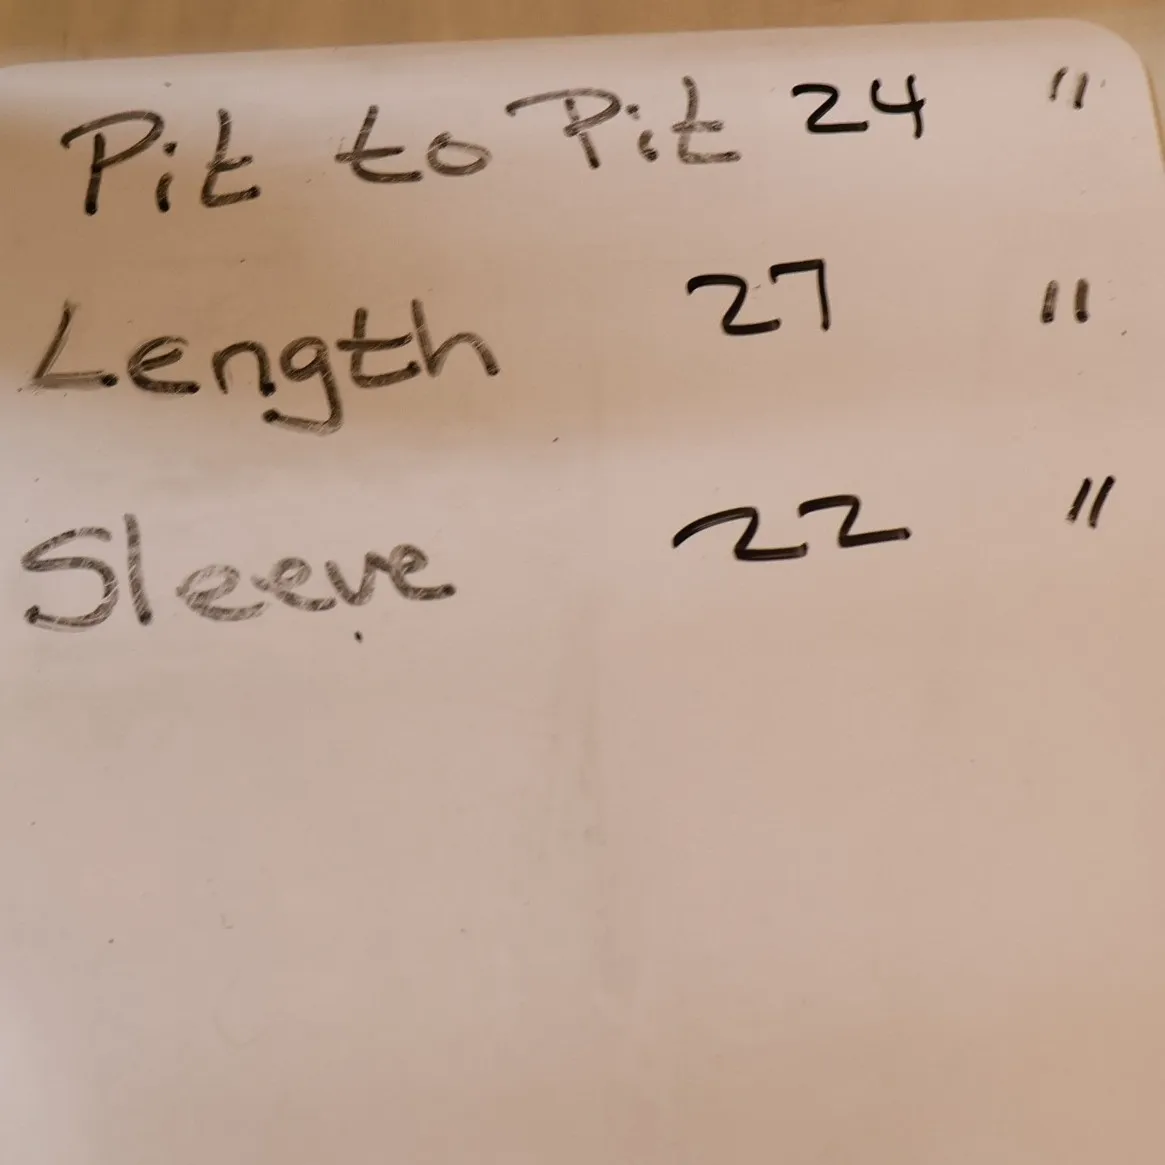 Pit to Pit 24 "
Length 27 "
Sleeve 22 "